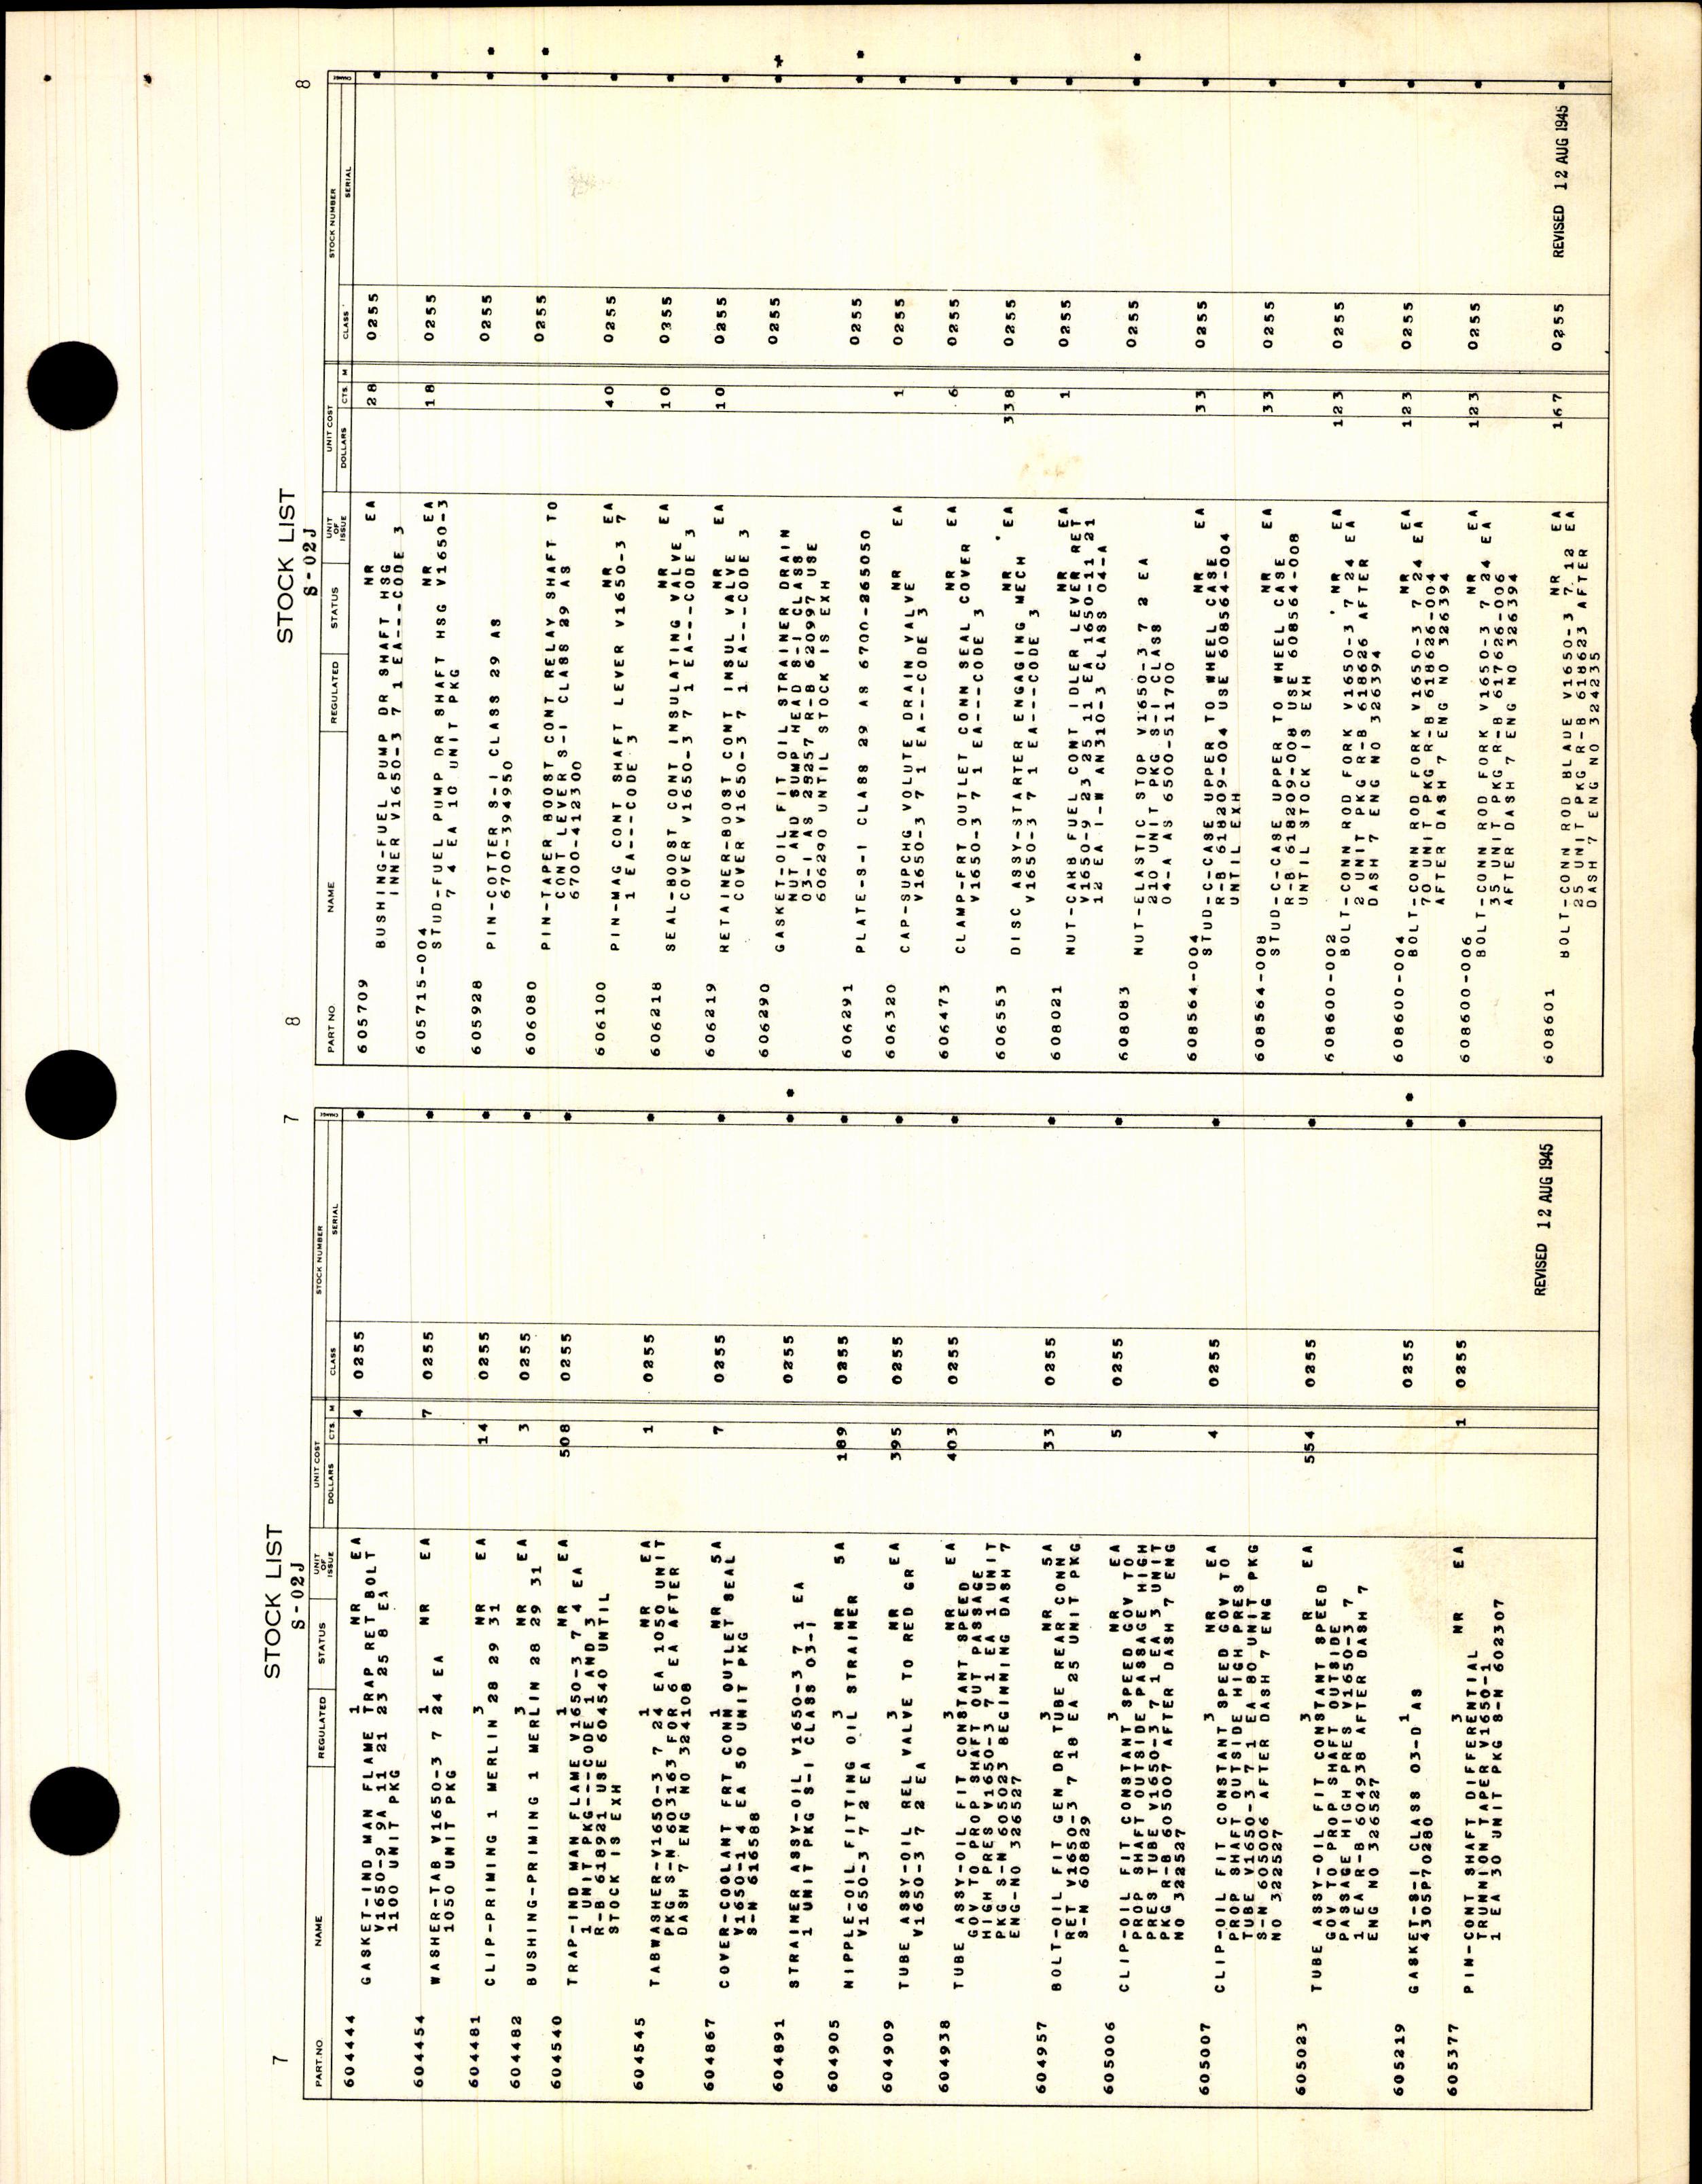 7 STOCK LIST 7
S-02J
PART NO. NAME REGULATED STATUS UNIT OF ISSUE UNIT COST DOLLARS CTS. M STOCK NUMBER CLASS SERIAL CHANGE
604444 1 NR EA 4 0255
GASKET-IND MAN FLAME TRAP RET BOLT
V1650-9 9A 11 21 23 25 8 EA
1100 UNIT PKG
604454 1 NR EA 7 0255
WASHER-TAB V1650-3 7 24 EA
1050 UNIT PKG
604481 3 NR EA 14 0255
CLIP-PRIMING 1 MERLIN 28 29 31
604482 3 NR EA 3 0255
BUSHING-PRIMING 1 MERLIN 28 29 31
604540 1 NR EA 508 0255
TRAP-IND MAN FLAME V1650-3 7 4 EA
1 UNIT PKG---CODE 1 AND 3
R-B 618921 USE 604540 UNTIL
STOCK IS EXH
604545 1 NR EA 1 0255
TABWASHER-V1650-3 7 24 EA 1050 UNIT
PKG S-N 603163 FOR 6 EA AFTER
DASH 7 ENG NO 324108
604867 1 NR 5A 7 0255
COVER-COOLANT FRT CONN OUTLET SEAL
V1650-1 4 EA 50 UNIT PKG
S-N 616588
604891 0255
STRAINER ASSY-OIL V1650-3 7 1 EA
1 UNIT PKG S-I CLASS 03-I
604905 3 NR 5A 189 0255
NIPPLE-OIL FITTING OIL STRAINER
V1650-3 7 2 EA
604909 3 NR EA 395 0255
TUBE ASSY-OIL REL VALVE TO RED GR
V1650-3 7 2 EA
604938 3 NR EA 403 0255
TUBE ASSY-OIL FIT CONSTANT SPEED
GOV TO PROP SHAFT OUT PASSAGE
HIGH PRES V1650-3 7 1 EA 1 UNIT
PKG S-N 605023 BEGINNING DASH 7
ENG-NO 326527
604957 3 NR 5A 33 0255
BOLT-OIL FIT GEN DR TUBE REAR CONN
RET V1650-3 7 18 EA 25 UNIT PKG
S-N 608829
605006 3 NR EA 5 0255
CLIP-OIL FIT CONSTANT SPEED GOV TO
PROP SHAFT OUTSIDE PASSAGE HIGH
PRES TUBE V1650-3 7 1 EA 3 UNIT
PKG R-B 605007 AFTER DASH 7 ENG
NO 322527
605007 3 NR EA 4 0255
CLIP-OIL FIT CONSTANT SPEED GOV TO
PROP SHAFT OUTSIDE HIGH PRES
TUBE V1650-3 7 1 EA 80 UNIT PKG
S-N 605006 AFTER DASH 7 ENG
NO 322527
605023 3 R EA 554 0255
TUBE ASSY-OIL FIT CONSTANT SPEED
GOV TO PROP SHAFT OUTSIDE
PASSAGE HIGH PRES V1650-3 7
1 EA R-B 604938 AFTER DASH 7
ENG NO 326527
605219 1 0255
GASKET-S-I CLASS 03-D AS
4305P70280
605377 3 NR EA 1 0255
PIN-CONT SHAFT DIFFERENTIAL
TRUNNION TAPER V1650-1
1 EA 30 UNIT PKG S-N 602307
REVISED 12 AUG 1945
8 STOCK LIST 8
S-02J
PART NO NAME REGULATED STATUS UNIT OF ISSUE UNIT COST DOLLARS CTS. M STOCK NUMBER CLASS SERIAL CHANGE
605709 NR EA 28 0255
BUSHING-FUEL PUMP DR SHAFT HSG
INNER V1650-3 7 1 EA---CODE 3
605715-004 NR EA 18 0255
STUD-FUEL PUMP DR SHAFT HSG V1650-3
7 4 EA 10 UNIT PKG
605928 0255
PIN-COTTER S-I CLASS 29 AS
6700-394950
606080 0255
PIN-TAPER BOOST CONT RELAY SHAFT TO
CONT LEVER S-I CLASS 29 AS
6700-412300
606100 NR EA 40 0255
PIN-MAG CONT SHAFT LEVER V1650-3 7
1 EA---CODE 3
606218 NR EA 10 0355
SEAL-BOOST CONT INSULATING VALVE
COVER V1650-3 7 1 EA---CODE 3
606219 NR EA 10 0255
RETAINER-BOOST CONT INSUL VALVE
COVER V1650-3 7 1 EA---CODE 3
606290 0255
GASKET-OIL FIT OIL STRAINER DRAIN
NUT AND SUMP HEAD S-I CLASS
03-I AS 29257 R-B 620997 USE
606290 UNTIL STOCK IS EXH
606291 0255
PLATE-S-I CLASS 29 AS 6700-265050
606320 NR EA 1 0255
CAP-SUPCHG VOLUTE DRAIN VALVE
V1650-3 7 1 EA---CODE 3
606473 NR EA 6 0255
CLAMP-FRT OUTLET CONN SEAL COVER
V1650-3 7 1 EA---CODE 3
606553 NR EA 338 0255
DISC ASSY-STARTER ENGAGING MECH
V1650-3 7 1 EA---CODE 3
608021 NR EA 1 0255
NUT-CARB FUEL CONT IDLER LEVER RET
V1650-9 23 25 11 EA 1650-11 21
12 EA I-W AN310-3 CLASS 04-A
608083 0255
NUT-ELASTIC STOP V1650-3 7 2 EA
210 UNIT PKG S-I CLASS
04-A AS 6500-511700
608564-004 NR EA 33 0255
STUD-C-CASE UPPER TO WHEEL CASE
R-B 618209-004 USE 608564-004
UNTIL EXH
608564-008 NR EA 33 0255
STUD-C-CASE UPPER TO WHEEL CASE
R-B 618209-008 USE 608564-008
UNTIL STOCK IS EXH
608600-002 NR EA 123 0255
BOLT-CONN ROD FORK V1650-3 7 24 EA
2 UNIT PKG R-B 618626 AFTER
DASH 7 ENG NO 326394
608600-004 NR EA 123 0255
BOLT-CONN ROD FORK V1650-3 7 24 EA
70 UNIT PKG R-B 618626-004
AFTER DASH 7 ENG NO 326394
608600-006 NR EA 123 0255
BOLT-CONN ROD FORK V1650-3 7 24 EA
35 UNIT PKG R-B 617626-006
AFTER DASH 7 ENG NO 326394
608601 NR EA 167 0255
BOLT-CONN ROD BLADE V1650-3 7 12 EA
25 UNIT PKG R-B 618623 AFTER
DASH 7 ENG NO 324235
REVISED 12 AUG 1945